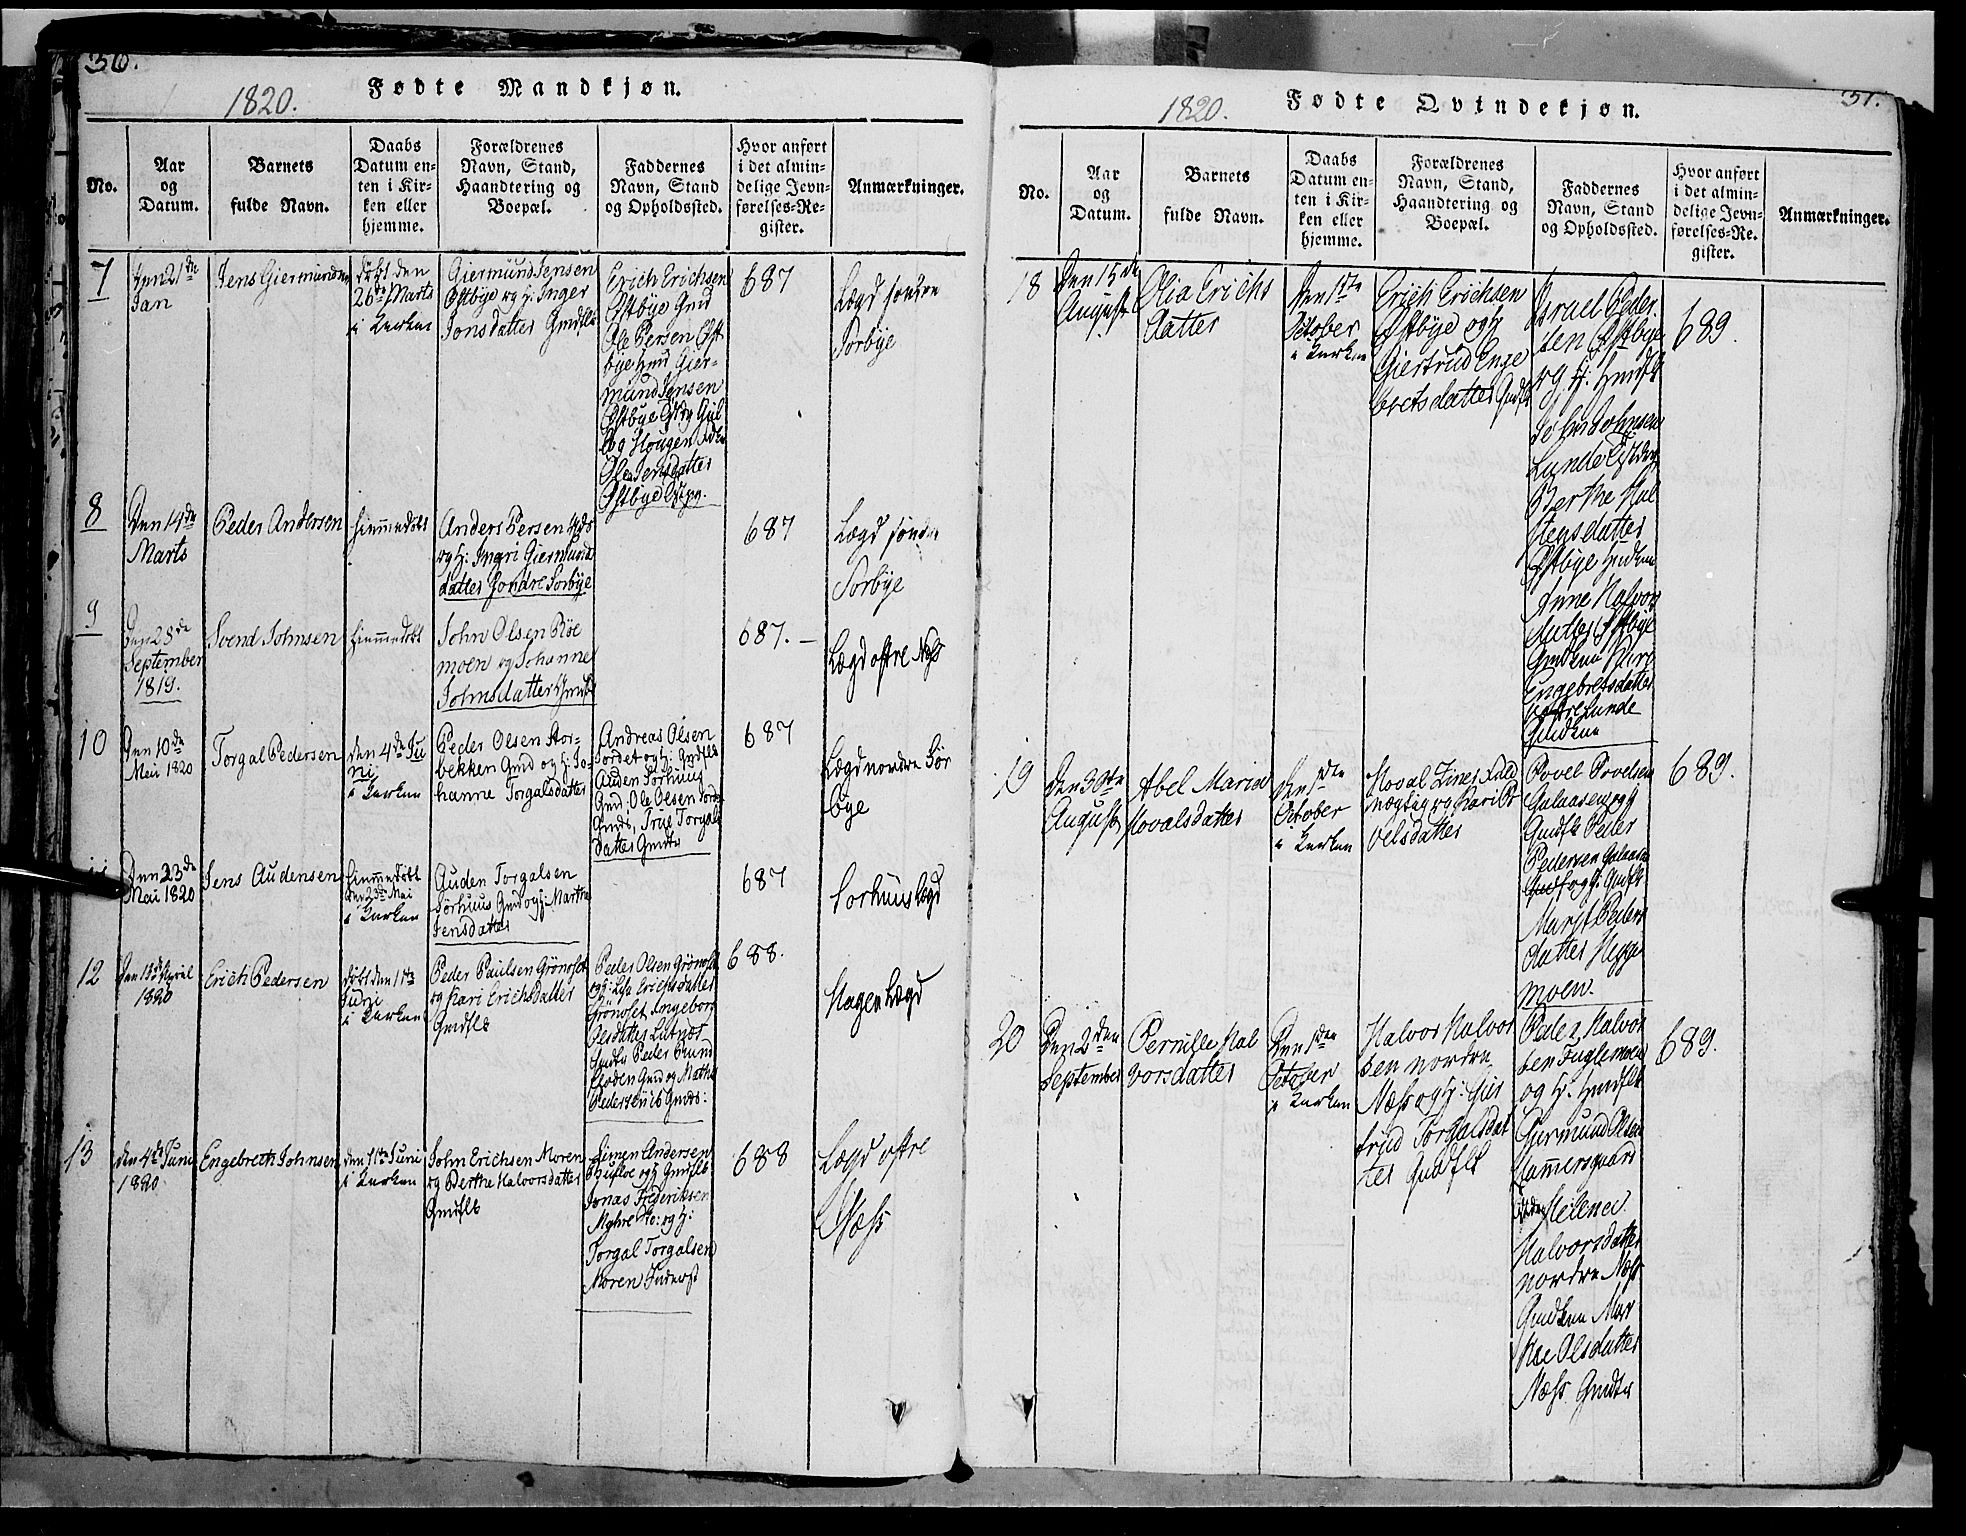 36.
1820.
Fødte Mandkjøn.
No.
Aar
og
Datum.
Barnets
fulde Navn.
Daabs
Datum en-
ten i Kir-
ken eller
hjemme.
Forældrenes
Navn, Stand,
Haandtering og
Boepæl.
Faddernes
Navn, Stand
og Opholdssted.
Hvor anført
i det almin-
delige Jevn-
førelses-Re-
gister.
Anmærkninger.
7
Den 21de
Jan
Jens Giermundsen
døbt den
26de Marts
i Kirken
Giermund Jensen
Østbye og H: Inger
Jonsdatter Gmdflk
Erich Erichsen
Østbye Gmd
Ole Persen Øst
bye Hmd Gier-
mund Jensen
Østbye
Ole Jensdatter
Østbye
687
Lægd søndre
Sorbye
8
Den 14de
Marts
Peder Andersen
hiemmedøbt
Anders Persen
og H: Ingri Giermunds
datter Søndre Sorbye
687
Lægd søndre
Sorbye
9
Den 28de
September
1819.
Svend Johnsen
hiemmedøbt
John Olsen Røe
moen og Johanne
Johnsdatter
687. —
Lægd østre Næss
10
Den 10de
Mai 1820
Torgal Pedersen
den 4de Ju
ni
i Kirken
Peder Olsen Stor-
bekken Gmd og H: Jo-
hanne Torgalsdatter
Andreas Olsen
Sordet og H: Gmdflk
Auden Sorhuus
Gmd: Ole Olsen
Torgals
datter Gmdtr
687
Lægd nordre Sør
bye
Den 23de
Mai 1820
Jens Audensen
hiemmedøbt
den 23de Mai
i Kirken
Auden Torgalsen
Sørhuus Gmd og H: Marthe
Jensdatter
687
Sorhuus Lægd
12
April
1820
Erich Pedersen
døbt den 11te
Juni
i Kirken
Peder Paulsen Grønoset
og Kari Erichsdatter
Gmdflk
Peder Olsen Grønoset
og H: Erichsdatter
Grønoset Ingeborg
Olsdatter Lutnæs
Peder
Gmd og
Pedersen
688.
Hagen Lægd
13
den 4de Juni
1820
Engebreth Johnsen
den 11te Juni
i Kirken
John Erichsen Moren
og Berthe Halvorsdatter
Gmdflk
Simen Andersen
og H Gmdflk
Jonas Frederiksen
Myhre og H:
Torgal Torgalsen
Moren Inderst
688
Lægd østre
Næss
37.
1820.
Fødte Qvindekjøn.
No.
Aar
og
Datum.
Barnets
fulde Navn.
Daabs
Datum en-
ten i Kir-
ken eller
hjemme.
Forældrenes
Navn, Stand,
Haandtering og
Boepæl.
Faddernes
Navn, Stand
og Opholdssted.
Hvor anført
i det almin-
delige Jevn-
førelses-Re-
gister.
Anmærkninger.
18
Den 15de
August
Olia Erichs
datter
Den 1ste
October
i Kirken
Erich Erichsen
Østbye og H
Giertrud Enge
bretsdatter Gmdflk
Israel Peder
sen Østbye
og H: Hmdflk
John Johnsen
Lunde
Berthe Hal
stensdatter
Østbye
Anne Halvors
datter Østbye
Engebretsdatter
Lunde
689.
19
Den 30te
August
Abel Maria
Hovalsdatter
Den 1ste
October
i Kirken
Hoval
og Kari Po
velsdatter
Povel Povelsen
Galaasen og H
Gmdflk Peder
Pedersen Galaasen
og H: Gmdflk
Maryt Peders
datter Hegge
moen.
689.
20
Den 2den
September
Pernille Hal
vorsdatter
Den 1ste
October
i Kirken
Halvor Halvor
sen nordre
Næss og H: Gier
trud Torgalsdat
ter Gmdflk
Peder Halvor
sen Fuglemoen
og H: Hmdflk
Giermund Olsen
Hammersgaard
Helena
Halvorsdatter
nordre Næss
Mar
the Olsdatter
Næss Gmdtr
689.